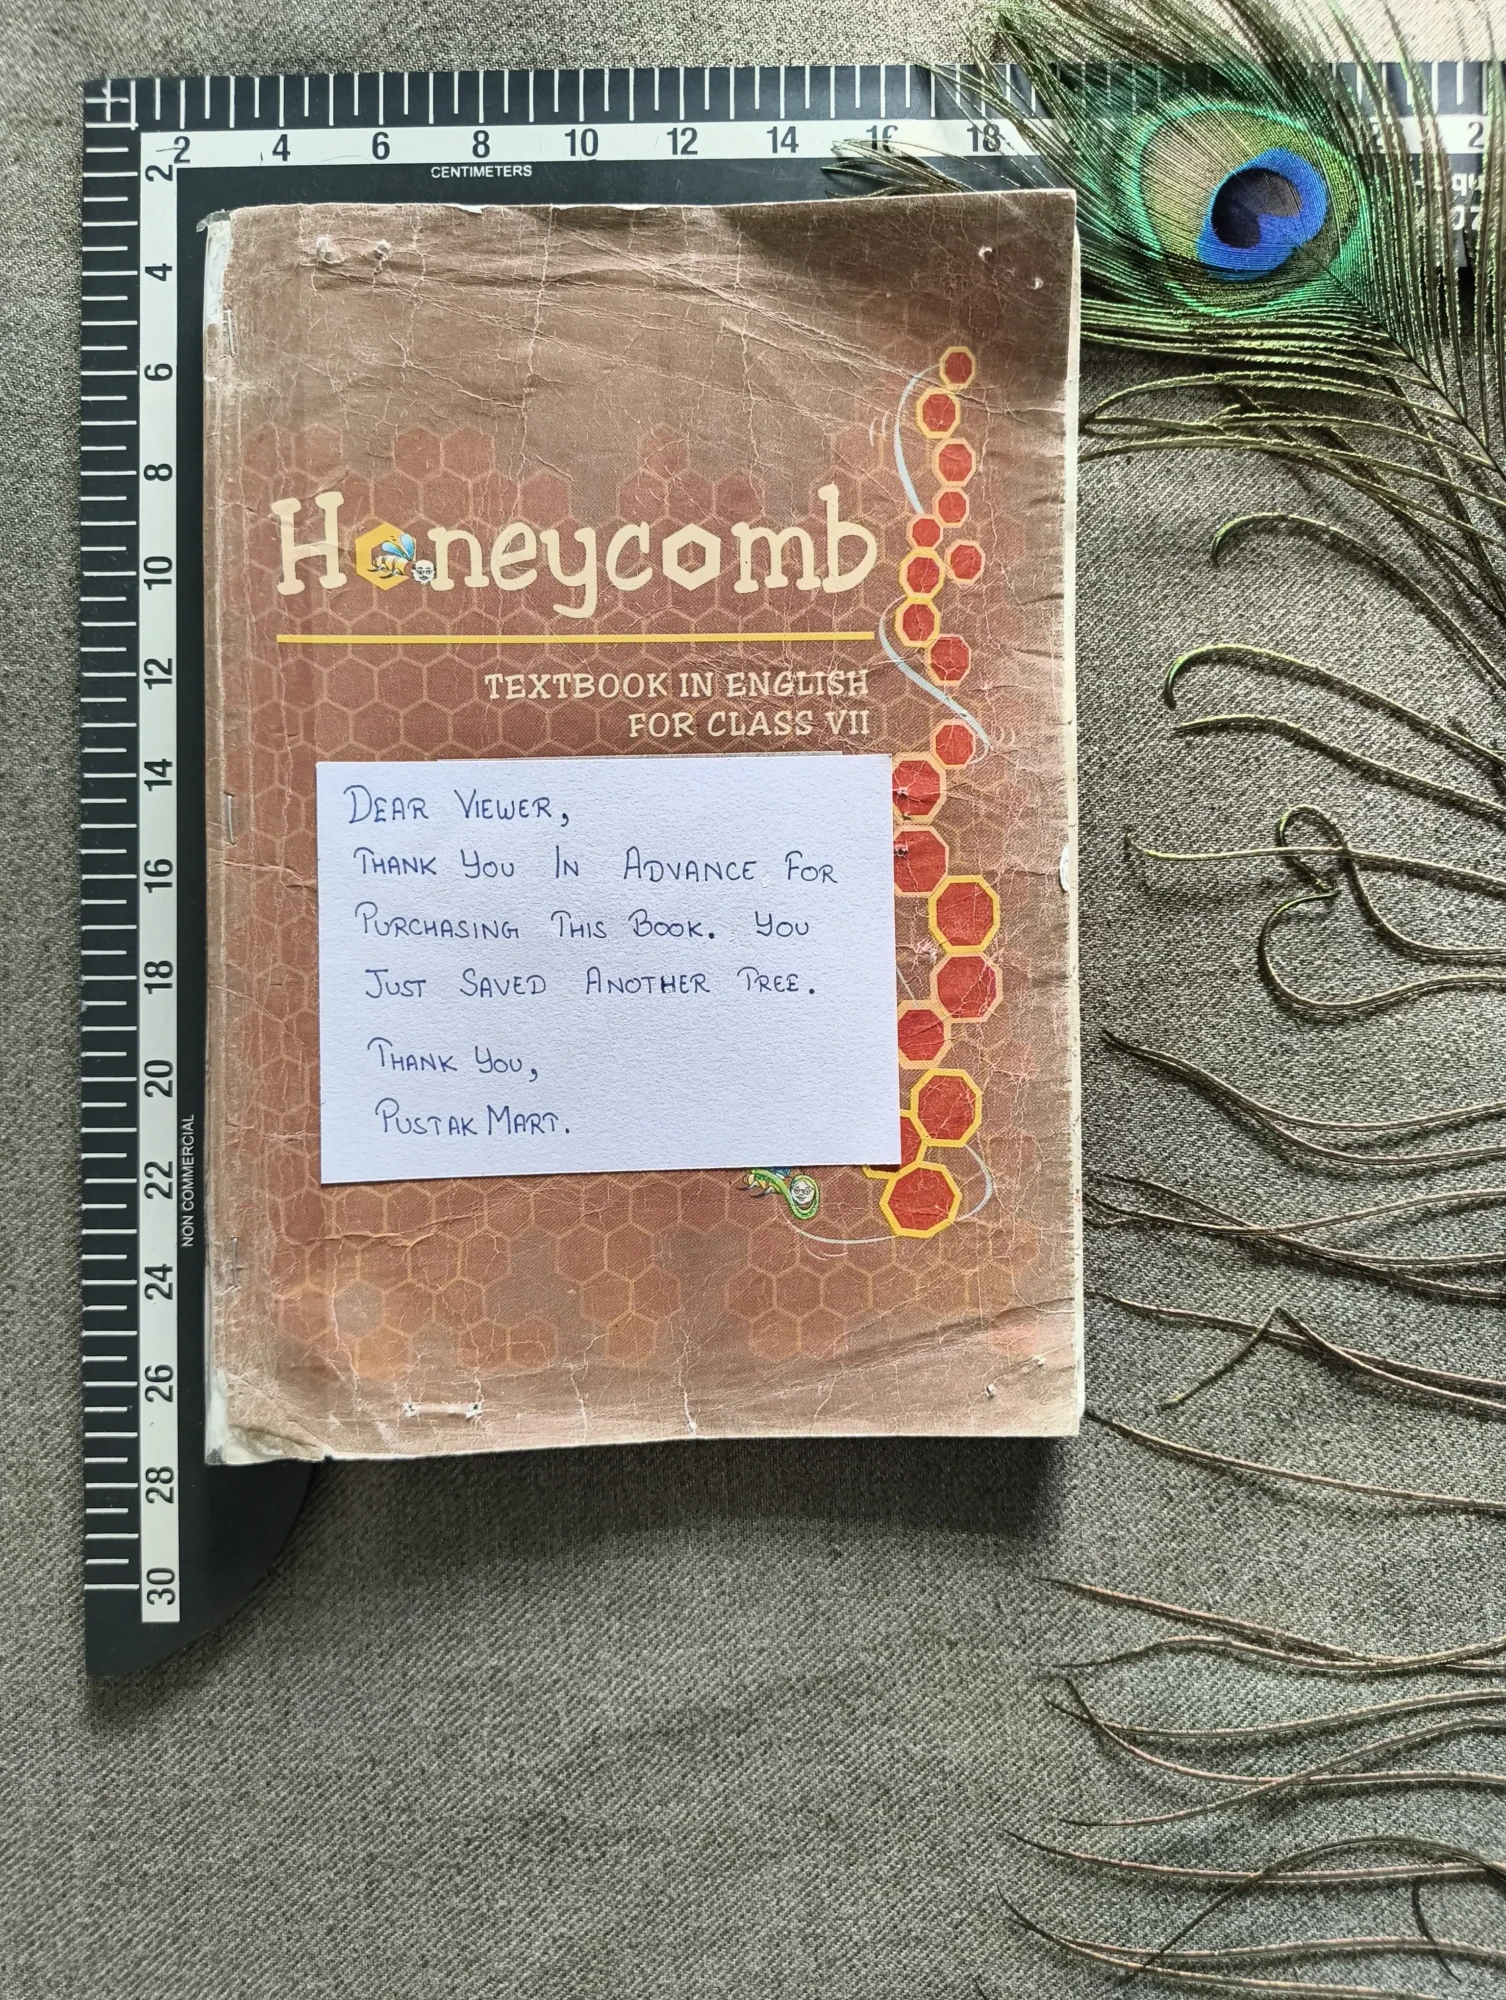 2 4 6 8 10 12 14 16 18
CENTIMETERS
2
4
6
8
10
12
14
16
18
20
22
24
26
28
30
NON COMMERCIAL
Honeycomb
TEXTBOOK IN ENGLISH
FOR CLASS VII
DEAR VIEWER,
THANK YOU IN ADVANCE FOR
PURCHASING THIS BOOK. YOU
JUST SAVED ANOTHER TREE.
THANK YOU,
PUSTAK MART.